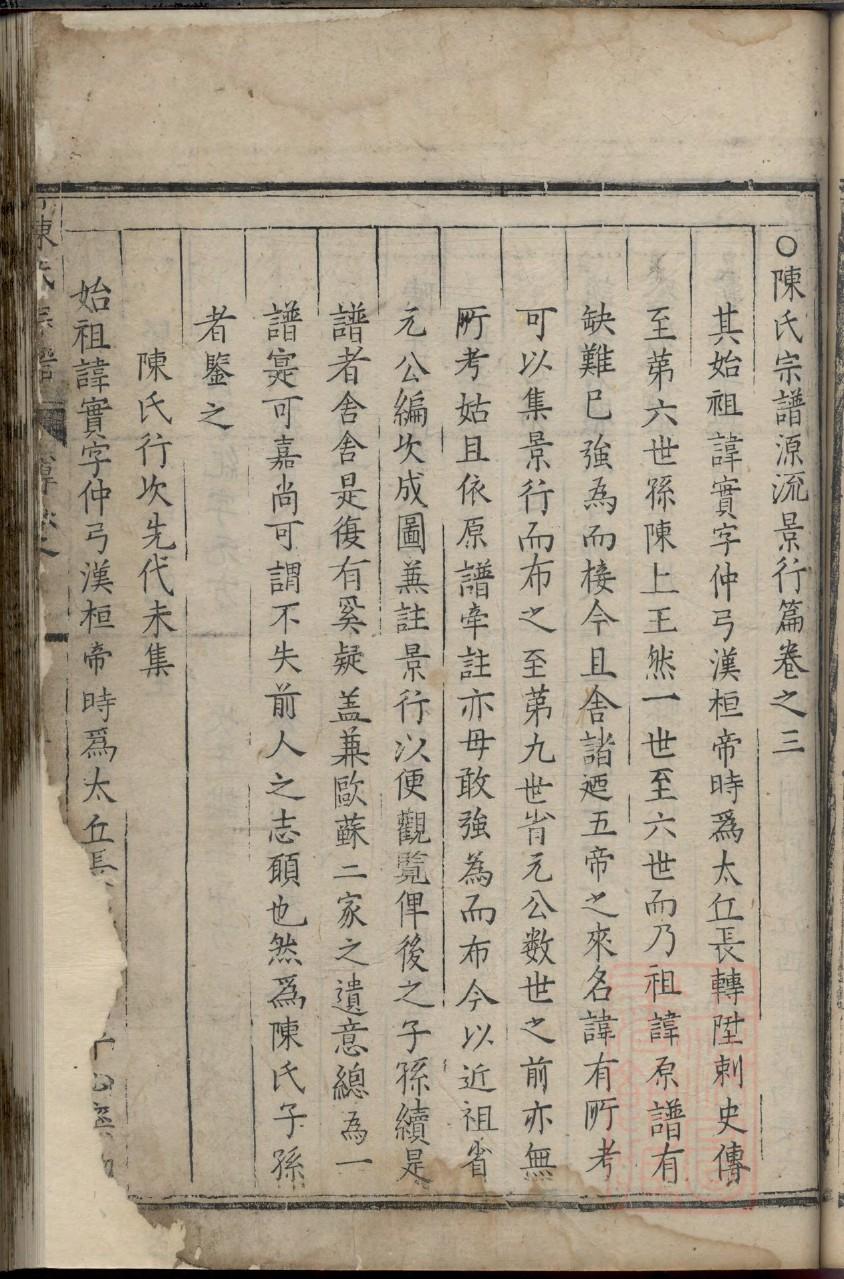 ○陳氏宗譜源流景行篇卷之三
其始祖諱實字仲弓漢桓帝時爲太丘長轉陞刺史傳
至第六世孫陳上王然一世至六世而乃祖諱原譜有
缺難已強為而接今且舍諸迊五帝之來名諱有所考
可以集景行而布之至第九世肯元公数世之前亦無
所考姑且依原譜牵註亦毋敢強為而布今以近祖省
元公編次成圖兼註景行以便觀覧俾後之子孫續是
譜者舍舍是復有奚疑盖兼歐蘇二家之遺意總為一
譜寔可嘉尚可謂不失前人之志願也然爲陳氏子孫
者鑒之
陳氏行次先代未集
始祖諱實字仲弓漢桓帝時爲太丘長
陳氏宗譜